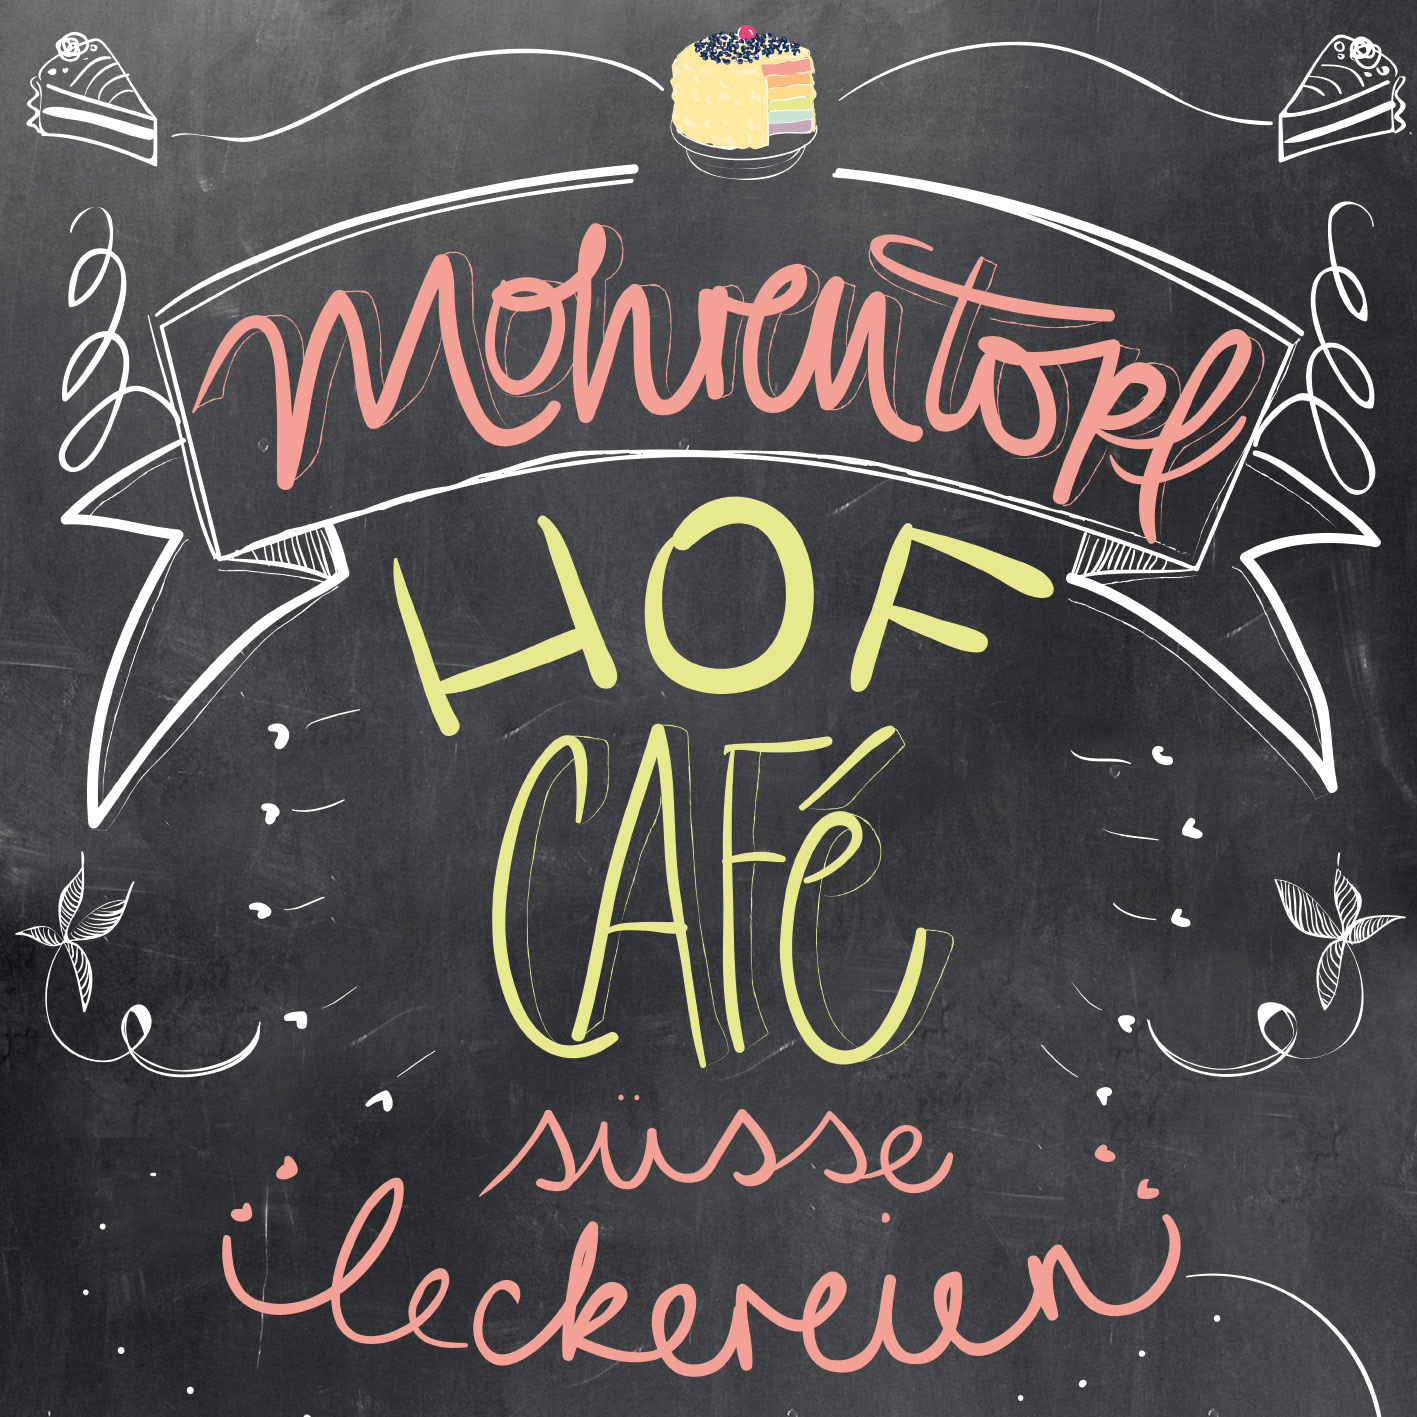 Mohrentopf
HOF
CAFé
süsse
leckereien